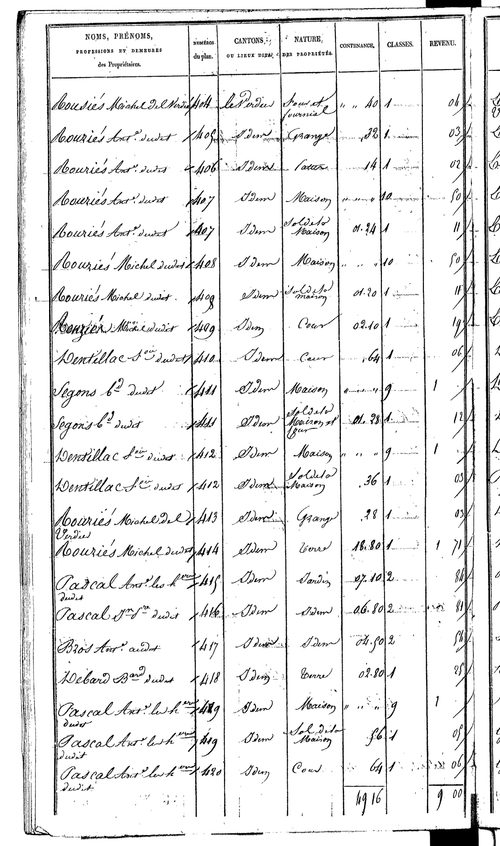 NOMS, PRÉNOMS, PROFESSIONS ET DEMEURES des Propriétaires. NUMÉROS du plan. CANTONS OU LIEUX DITS. NATURE DES PROPRIÉTÉS. CONTENANCE. CLASSES. REVENU.
Rouriés Michel del Verdié 404 le Verdier Four et fournial " " 40 1 04
Rouriés Ant. dudit 405 Idem Grange 32 1 03
Rouriés Ant. dudit 406 Idem Patus 14 1 02
Rouriés Ant. dudit 407 Idem Maison " " " 10 50
Rouriés Ant. dudit 407 Idem Sol de la Maison 01.24 1 11
Rouriés Michel dudit 408 Idem Maison " " " 10 50
Rouriés Michel dudit 409 Idem Sol de la maison 01.20 1 11
Michel dudit 409 Idem Cour 02.10 1 19
Dentillac dudit 410 Idem Cour 64 1 06
Segons dudit 411 Idem Maison " " " 9 1
Segons dudit 411 Idem Sol de la Maison et four 01.38 1 12
Dentillac dudit 412 Idem Maison " " " 9 1
Dentillac dudit 412 Idem Sol de la Maison 36 1 03
Rouriés Michel Del Verdier 413 Idem Grange 28 1 03
Rouriés Michel dudit 414 Idem Terre 18.80 1 1 71
Pascal Ant. les h. dudit 415 Idem Jardin 07.10 2
Pascal dudit 416 Idem Idem 06.80 2 81
Bros Ant. dudit 417 Idem Idem 04.50 2
Debard dudit 418 Idem Terre 02.80 1 25
Pascal Ant. les h. dudit 419 Idem Maison " " " 9 1
Pascal Ant. les h. dudit 419 Idem Sol de la Maison 56 1 05
Pascal Ant. les h. dudit 420 Idem Cour 64 1 06
49 16 9 00